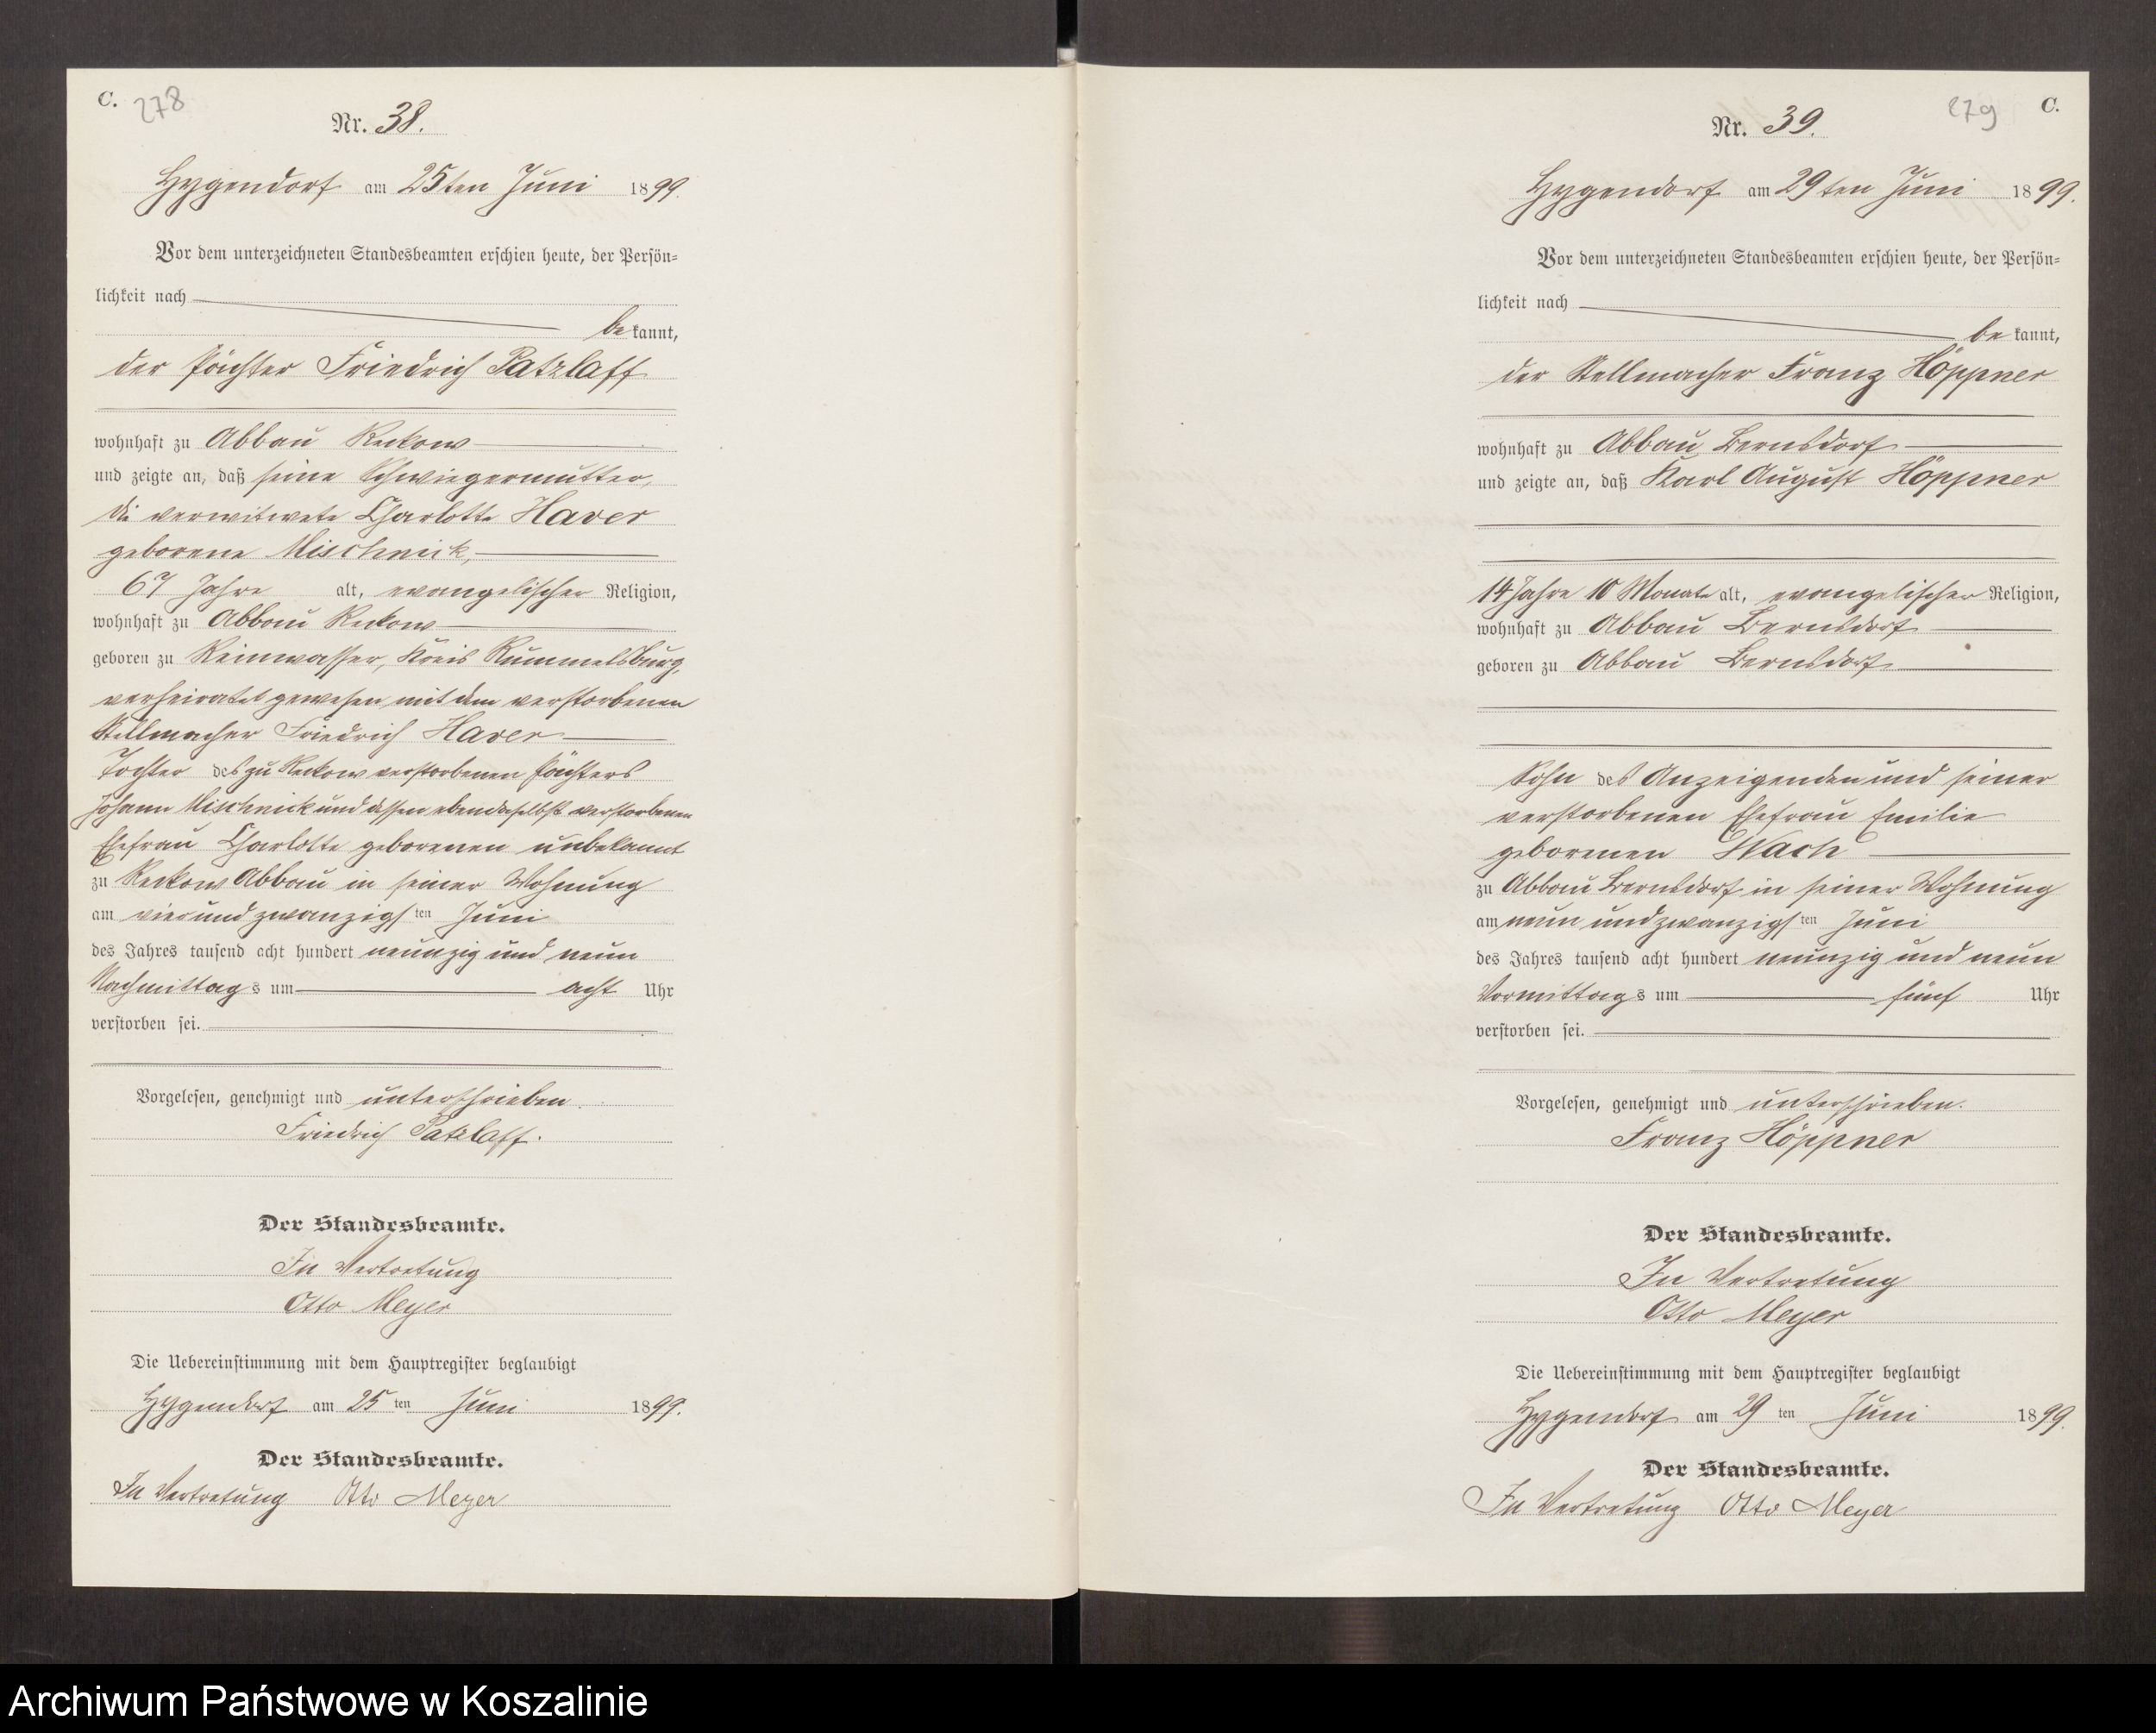 C. 278
Nr. 38.
Hygendorf am 25ten Juni 1899.
Vor dem unterzeichneten Standesbeamten erschien heute, der Persön-
lichkeit nach
bekannt,
der Pächter Friedrich Patzlaff
wohnhaft zu Abbau Reckow
und zeigte an, daß seine Schwiegermutter,
die verwitwete Charlotte Haver
geborene Mischnick,
67 Jahre alt, evangelischer Religion,
wohnhaft zu Abbau Reckow
geboren zu Reinwasser, Kreis Rummelsburg,
verheiratet gewesen mit dem verstorbenen
Stellmacher Friedrich Haver
Tochter des zu Reckow verstorbenen Pächters
Johann Mischnick und dessen ebendaselbst verstorbenen
Ehefrau Charlotte geborenen unbekannt
zu Reckow Abbau in seiner Wohnung
am vierundzwanzigsten Juni
des Jahres tausend acht hundert neunzig und neun
Nachmittags um acht Uhr
verstorben sei.
Vorgelesen, genehmigt und unterschrieben.
Friedrich Patzlaff.
Der Standesbeamte.
In Vertretung
Otto Meyer
Die Uebereinstimmung mit dem Hauptregister beglaubigt
Hygendorf am 25 ten Juni 1899.
Der Standesbeamte.
In Vertretung Otto Meyer
279 C.
Nr. 39.
Hygendorf am 29ten Juni 1899.
Vor dem unterzeichneten Standesbeamten erschien heute, der Persön-
lichkeit nach
bekannt,
der Stellmacher Franz Höppner
wohnhaft zu Abbau Bernsdorf
und zeigte an, daß Karl August Höppner
14 Jahre 10 Monate alt, evangelischer Religion,
wohnhaft zu Abbau Bernsdorf
geboren zu Abbau Bernsdorf
Sohn des Anzeigenden und seiner
verstorbenen Ehefrau Emilie
geborenen Wach
zu Abbau Bernsdorf in seiner Wohnung
am neun und zwanzigsten Juni
des Jahres tausend acht hundert neunzig und neun
Vormittags um fünf Uhr
verstorben sei.
Vorgelesen, genehmigt und unterschrieben.
Franz Höppner
Der Standesbeamte.
In Vertretung
Otto Meyer
Die Uebereinstimmung mit dem Hauptregister beglaubigt
Hygendorf am 29 ten Juni 1899.
Der Standesbeamte.
In Vertretung Otto Meyer
Archiwum Państwowe w Koszalinie